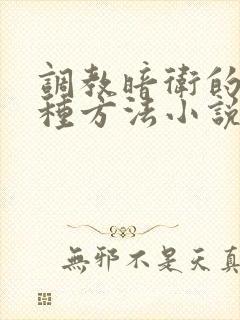 調教暗衛的
種方法小說
無邪不是天真